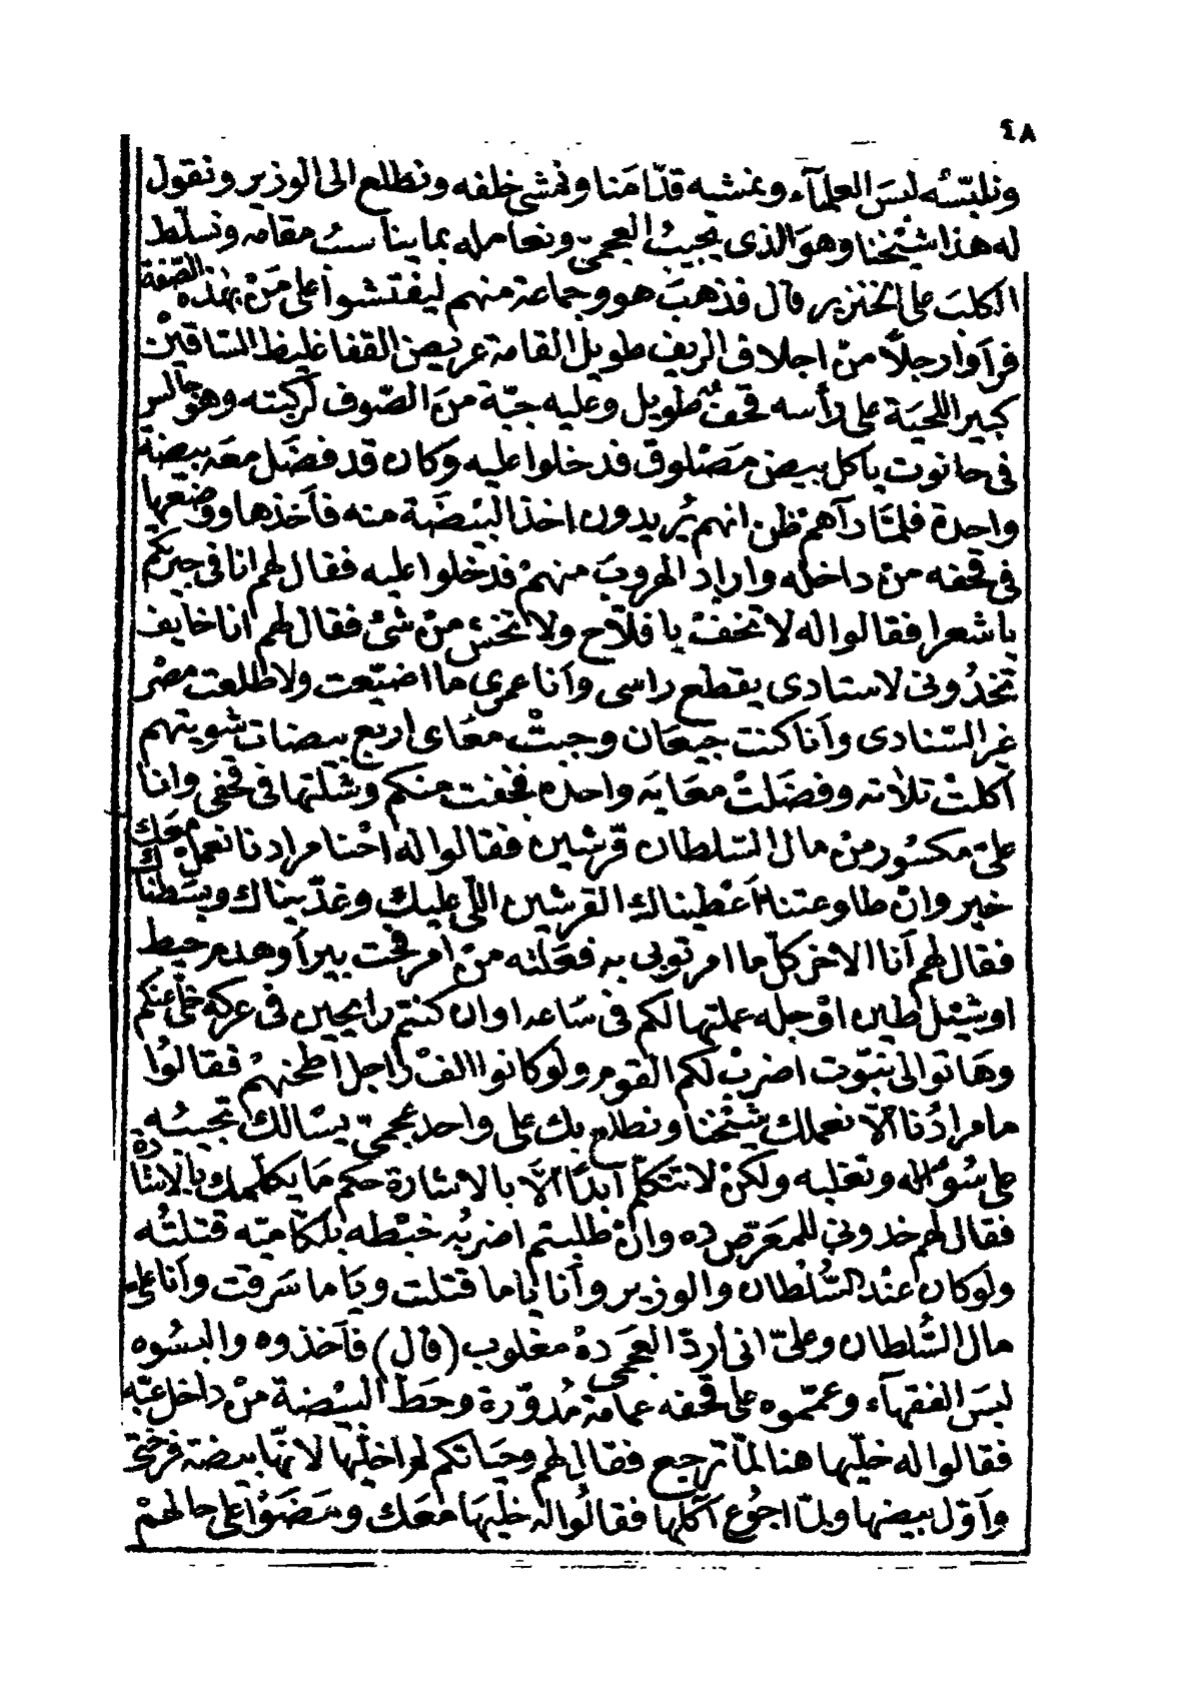 ٤٨
ونلبّسُه لبسَ العلمآء ونمشيه قدّامَنا ونمشى خلفه ونطلع الى الوزير ونقول
له هذا شيْخنا وهوَ الذى يجيبُ العجمى ونعامله بما يناسبُ مقامه ونسلّط
الكلبَ على الخنزير قال فذهبَ هو وجماعة منهم ليفتّشوا على مَنْ بهذه الصّفة
فرأوا رجلاً منْ اجلاف الريف طويل القامة عريض القفا غليظ السّاقيْن
كبير اللحيَة على رأسه قحفٌ طويل وعليه جبّة منَ الصّوف لركبته وهوَ جالس
فى حانوت ياكل بيض مَصْلوق فدخلوا عليه وكان قد فضَل معَه بيضة
واحدة فلمّا رآهمْ ظن انهم يُريدون اخذ البيْضَة منه فأخذها ووضعها
فى قحفه منْ داخله واراد الهروبَ منهمْ فدخلوا عليه فقال لهم انا فى جيرتكم
يا شعرا فقالوا له لا تخفْ يا فلاّح ولا تخشَ منْ شئ فقال لهم انا خايف
تخدُونى لاستادى يقطع راسى وأنا عمرى ما اضيّعت ولا طلعت مصْر
غير السّنادى وأنا كنت جيعَان وجبتْ معَاى اربع بيضات شويتهم
أكلتْ تلاته وفضَلتْ معَايَه واحده فخفت منكم وشلتها فى قحفى وانا
علىّ مكسُور منْ مال السّلطان قرشين فقالوا له احْنا مرادنا نعملْ معَك
خير وانْ طاوعتنا أعْطيناك القرشين اللّى عليك وغدّيناك وبسَطناك
فقال لهم أنا الاخر كلّ ما امرتونى به فعَلته منْ امر فحت بير أو هدم حيط
او شيْل طين اوْ جله عملتها لكم فى سَاعه وان كنتم رايحين فى عركه خلّى عنكم
وهَاتوا لى نبّوت اضربْ لكم القوم ولو كانوا الفْ راجل اطحنهمْ فقالوُا
ما مرادُنا الاّ نعملك شيْخنا ونطلع بك على واحد عجمىّ يسْالك تجيبُه
على سُؤاله وتغلبه ولكنْ لا تتكلّم أبدًا الاّ بالاشارة حكم مَا يكلّمك بالاشاره
فقال لهم خدونى للمعَرّص ده وانْ طلبتم اضربُه خبْطه بلكّاميّه قتلتُه
ولو كان عنْد السُّلطان والوزير وأنا ياما قتلت ويَاما سَرقت وأنا على
مال السُّلطان وعلىّ انى أردّ العجمى دهْ مغلوب (قال) فأخذوه والبسُوه
لبسَ الفقهآء وعمّموه على قحفه عمامة مُدوّرة وحَطّ البيْضة منْ داخل عبّه
فقالوا له خلّيها هنا لمّا ترجع فقال لهم وحيَاتكم لم اخلّيها لانّها بيضة فرختى
وأوّل بيضها ولمّا اجُوع آكلها فقالُوا له خلّيهَا معَك ومَضَوْا على حالهمْ